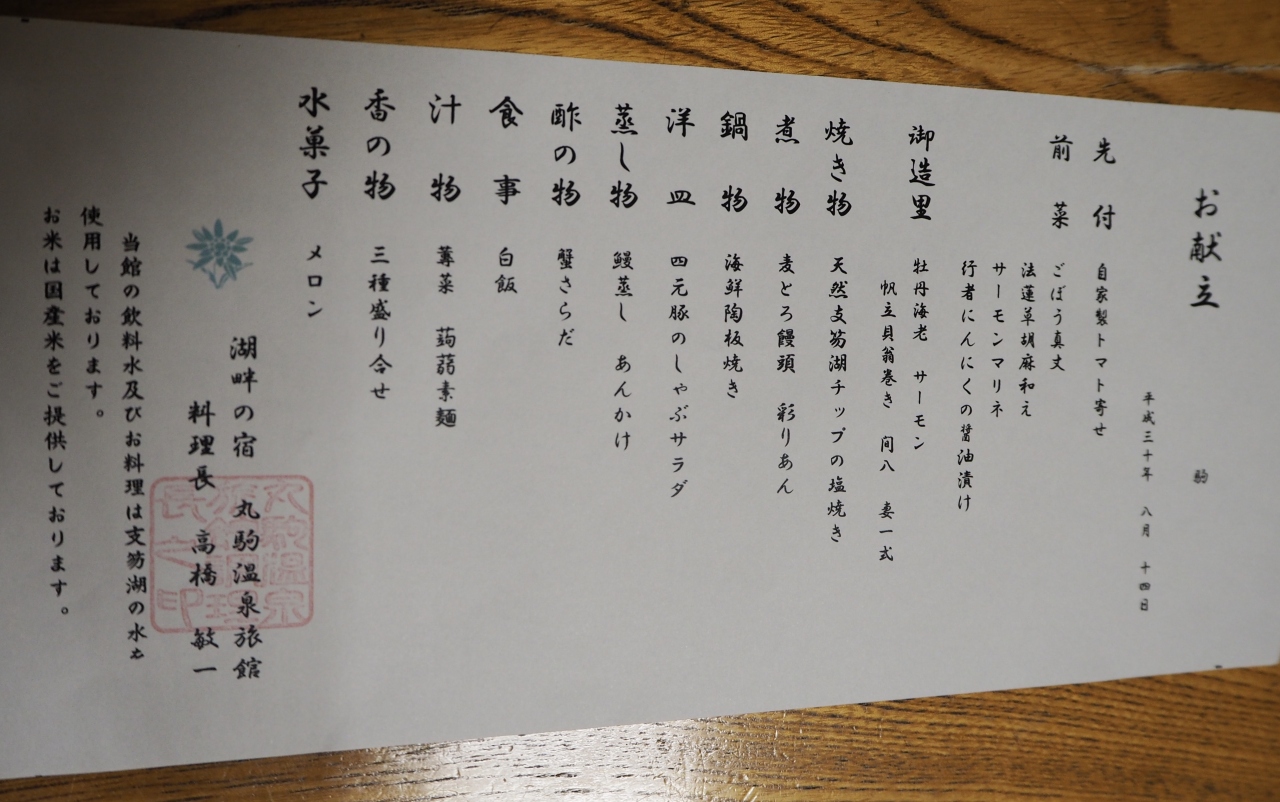 お献立 駒
平成三十年 八月 十四日
先付 自家製トマト寄せ
前菜 ごぼう真丈
法蓮草胡麻和え
サーモンマリネ
行者にんにくの醤油漬け
御造里 牡丹海老 サーモン
帆立貝翁巻き 間八 妻一式
焼き物 天然支笏湖チップの塩焼き
煮物 麦とろ饅頭 彩りあん
鍋物 海鮮陶板焼き
洋皿 四元豚のしゃぶサラダ
蒸し物 鰻蒸し あんかけ
酢の物 蟹さらだ
食事 白飯
汁物 蓴菜 蒟蒻素麺
香の物 三種盛り合せ
水菓子 メロン
湖畔の宿 丸駒温泉旅館
料理長 高橋 敏一
当館の飲料水及びお料理は支笏湖の水を
使用しております。
お米は国産米をご提供しております。